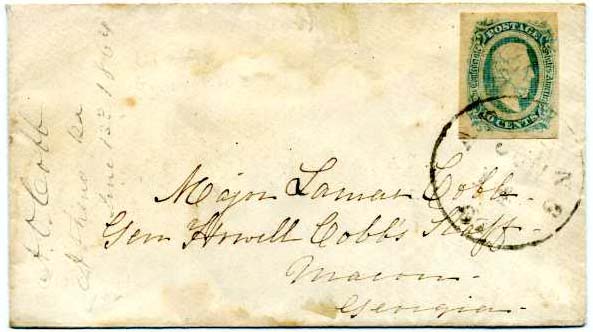 POSTAGE
Confederate States America
10 CENTS
Major Lamar Cobb
Gen Howell Cobbs Staff
Macon
Georgia
Athens Ga
June 13 1864